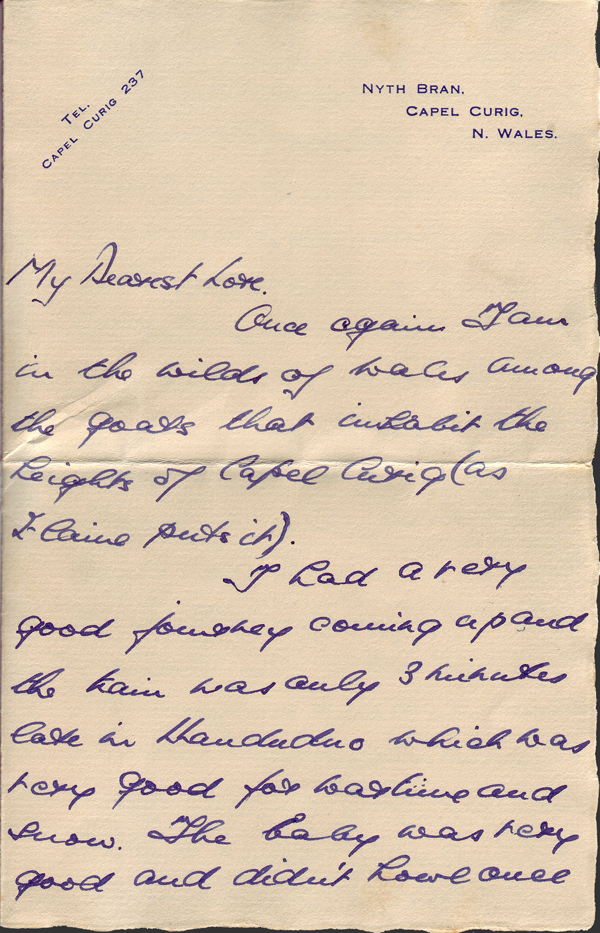 TEL.
CAPEL CURIG 237
NYTH BRAN,
CAPEL CURIG,
N. WALES.
My Dearest Love.
Once again I am
in the wilds of Wales among
the goats that inhabit the
heights of Capel Curig (as
Elaine puts it).
I had a very
good journey coming up and
the train was only 3 minutes
late in Llandudno which was
very good for wartime and
snow. The baby was very
good and didn't howl once